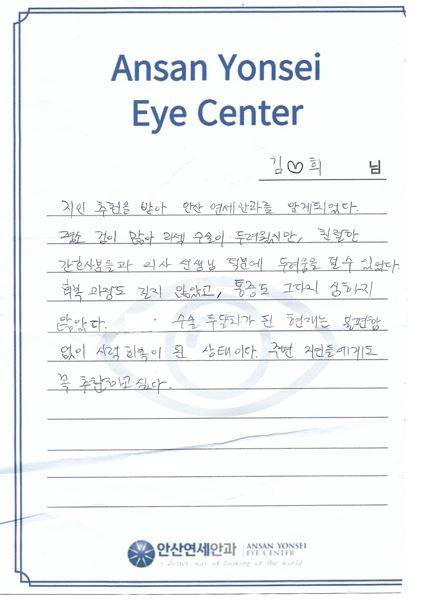 Ansan Yonsei
Eye Center
김♡희 님
지인 추천을 받아 안산 연세안과를 알게되었다.
평소 겁이 많아 라섹 수술이 두려웠지만, 친절한
간호사분들과 의사 선생님 덕분에 두려움을 덜 수 있었다.
회복 과정도 길지 않았고, 통증도 그다지 심하지
않았다. 수술 두달차가 된 현재는 불편함
없이 시력 회복이 된 상태이다. 주변 지인들에게도
꼭 추천하고 싶다.
안산연세안과 ANSAN YONSEI
EYE CENTER
A better way of looking at the world